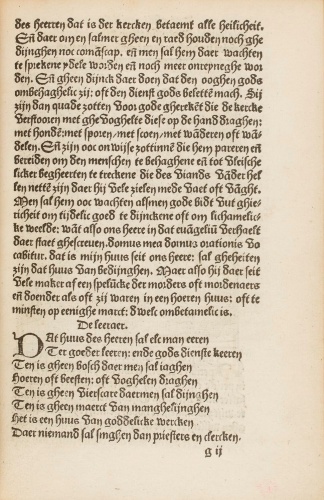 des heeren dat is der kercken betaemt alle heilicheit.
Eñ daer om en salmer gheen en raed houden noch ghe
dijnghen noc comãscap. eñ men sal hem daer wachten
te sprekene ydele worden eñ noch meer onreyneghe wor
den. Eñ gheen dijnck daer doen dat den ooghen gods
ombehaghelic zij: oft den dienst gods belettē mach. Hij
zijn dan quade zotten voor gode gherekēt die de kercke
verstooren met ghe voghelte diese op de hand draghen:
met hondē: met sporen/ met scoen/ met wãderen oft wã-
delen. Eñ zijn ooc on wijsse zottinnē die hem pareren eñ
bereiden om den menschen te behaghene eñ tot vleische
licker begheerten te trecken die des viands vãder hel
len nettē zijn daer hij vele zielen mede vaet oft vãght.
Men sal hem ooc wachten alsmen gode bidt vut ghie-
richeit om tijdelic goed te dijnckene oft om lichamelic-
ke weelde: wãt also ons heere in dat euãgeliũ verhaelt
daer staet ghescreuen. domus mea domus orationis vo
cabitur. dat is mijn huus seit ons heere: sal gheheiten
zijn dat huus van bedijnghen. Maer also hij daer seit
vele maker af een spelũcke der morders oft mordenaers
eñ doender als oft zij waren in een hoeren huus: oft te
minsten op eenighe marct: dwelc ombetamelic is.
De leeraer.
DAt huus des heeren sal elc man eeren
Ter goeder leeren: ende gods dienste keeren
Ten is gheen bosch daer men sal iaghen
Hoeren oft beesten: oft voghelen draghen
Ten is gheen vierscare daermen sal dijnghen
Ten is gheen maerct van manghelijnghen
Het is een huus van goddelicke wercken
Daer niemand sal singhen dan priesters en clercken.
g ij